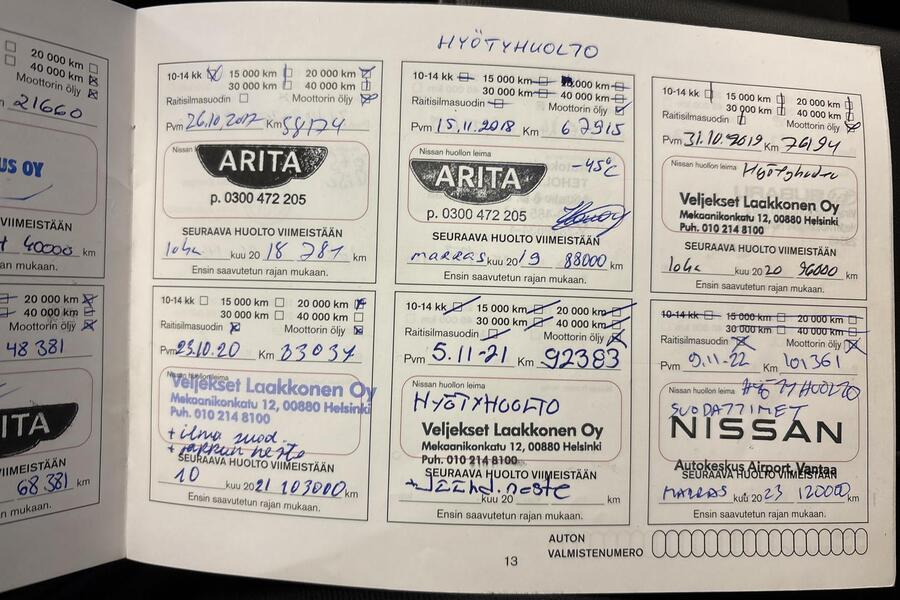 20 000 km
40 000 km
Moottorin öljy
21660
US OY
VIIMEISTÄÄN
40000 km
mukaan.
20 000 km
40 000 km
Moottorin öljy
48 381
ITA
VIIMEISTÄÄN
68 381 km
an mukaan.
HYÖTYHUOLTO
10-14 kk 15 000 km 20 000 km
30 000 km 40 000 km
Raitisilmasuodin Moottorin öljy
Pvm 26.10.2017 Km 58174
Nissan
ARITA
p. 0300 472 205
SEURAAVA HUOLTO VIIMEISTÄÄN
loka kuu 20 18 781 km
Ensin saavutetun rajan mukaan.
10-14 kk 15 000 km 20 000 km
30 000 km 40 000 km
Raitisilmasuodin Moottorin öljy
Pvm 15.11.2018 Km 67915
Nissan huollon leima
-45°C
ARITA
p. 0300 472 205
SEURAAVA HUOLTO VIIMEISTÄÄN
marras kuu 20 19 88000 km
Ensin saavutetun rajan mukaan.
10-14 kk 15 000 km 20 000 km
30 000 km 40 000 km
Raitisilmasuodin Moottorin öljy
Pvm 31.10.2019 Km 76194
Nissan huollon leima
Veljekset Laakkonen Oy
Mekaanikonkatu 12, 00880 Helsinki
Puh. 010 214 8100
SEURAAVA HUOLTO VIIMEISTÄÄN
loka kuu 20 20 96000 km
Ensin saavutetun rajan mukaan.
10-14 kk 15 000 km 20 000 km
30 000 km 40 000 km
Raitisilmasuodin Moottorin öljy
Pvm 23.10.20 Km 83034
Nissan huollon leima
Veljekset Laakkonen Oy
Mekaanikonkatu 12, 00880 Helsinki
Puh. 010 214 8100
+ ilma suod.
+ jarrun neste
SEURAAVA HUOLTO VIIMEISTÄÄN
10 kuu 20 21 103000 km
Ensin saavutetun rajan mukaan.
10-14 kk 15 000 km 20 000 km
30 000 km 40 000 km
Raitisilmasuodin Moottorin öljy
Pvm 5.11-21 Km 92383
Nissan huollon leima
HYÖTYHUOLTO
Veljekset Laakkonen Oy
Mekaanikonkatu 12, 00880 Helsinki
Puh. 010 214 8100
SEURAAVA HUOLTO VIIMEISTÄÄN
neste
kuu 20 km
Ensin saavutetun rajan mukaan.
10-14 kk 15 000 km 20 000 km
30 000 km 40 000 km
Raitisilmasuodin Moottorin öljy
Pvm 9.11-22 Km 101361
Nissan huollon leima HYÖTYHUOLTO
SUODATTIMET
NISSAN
Autokeskus Airport, Vantaa
SEURAAVA HUOLTO VIIMEISTÄÄN
MARRAS kuu 20 23 120000 km
Ensin saavutetun rajan mukaan.
AUTON
VALMISTENUMERO
13